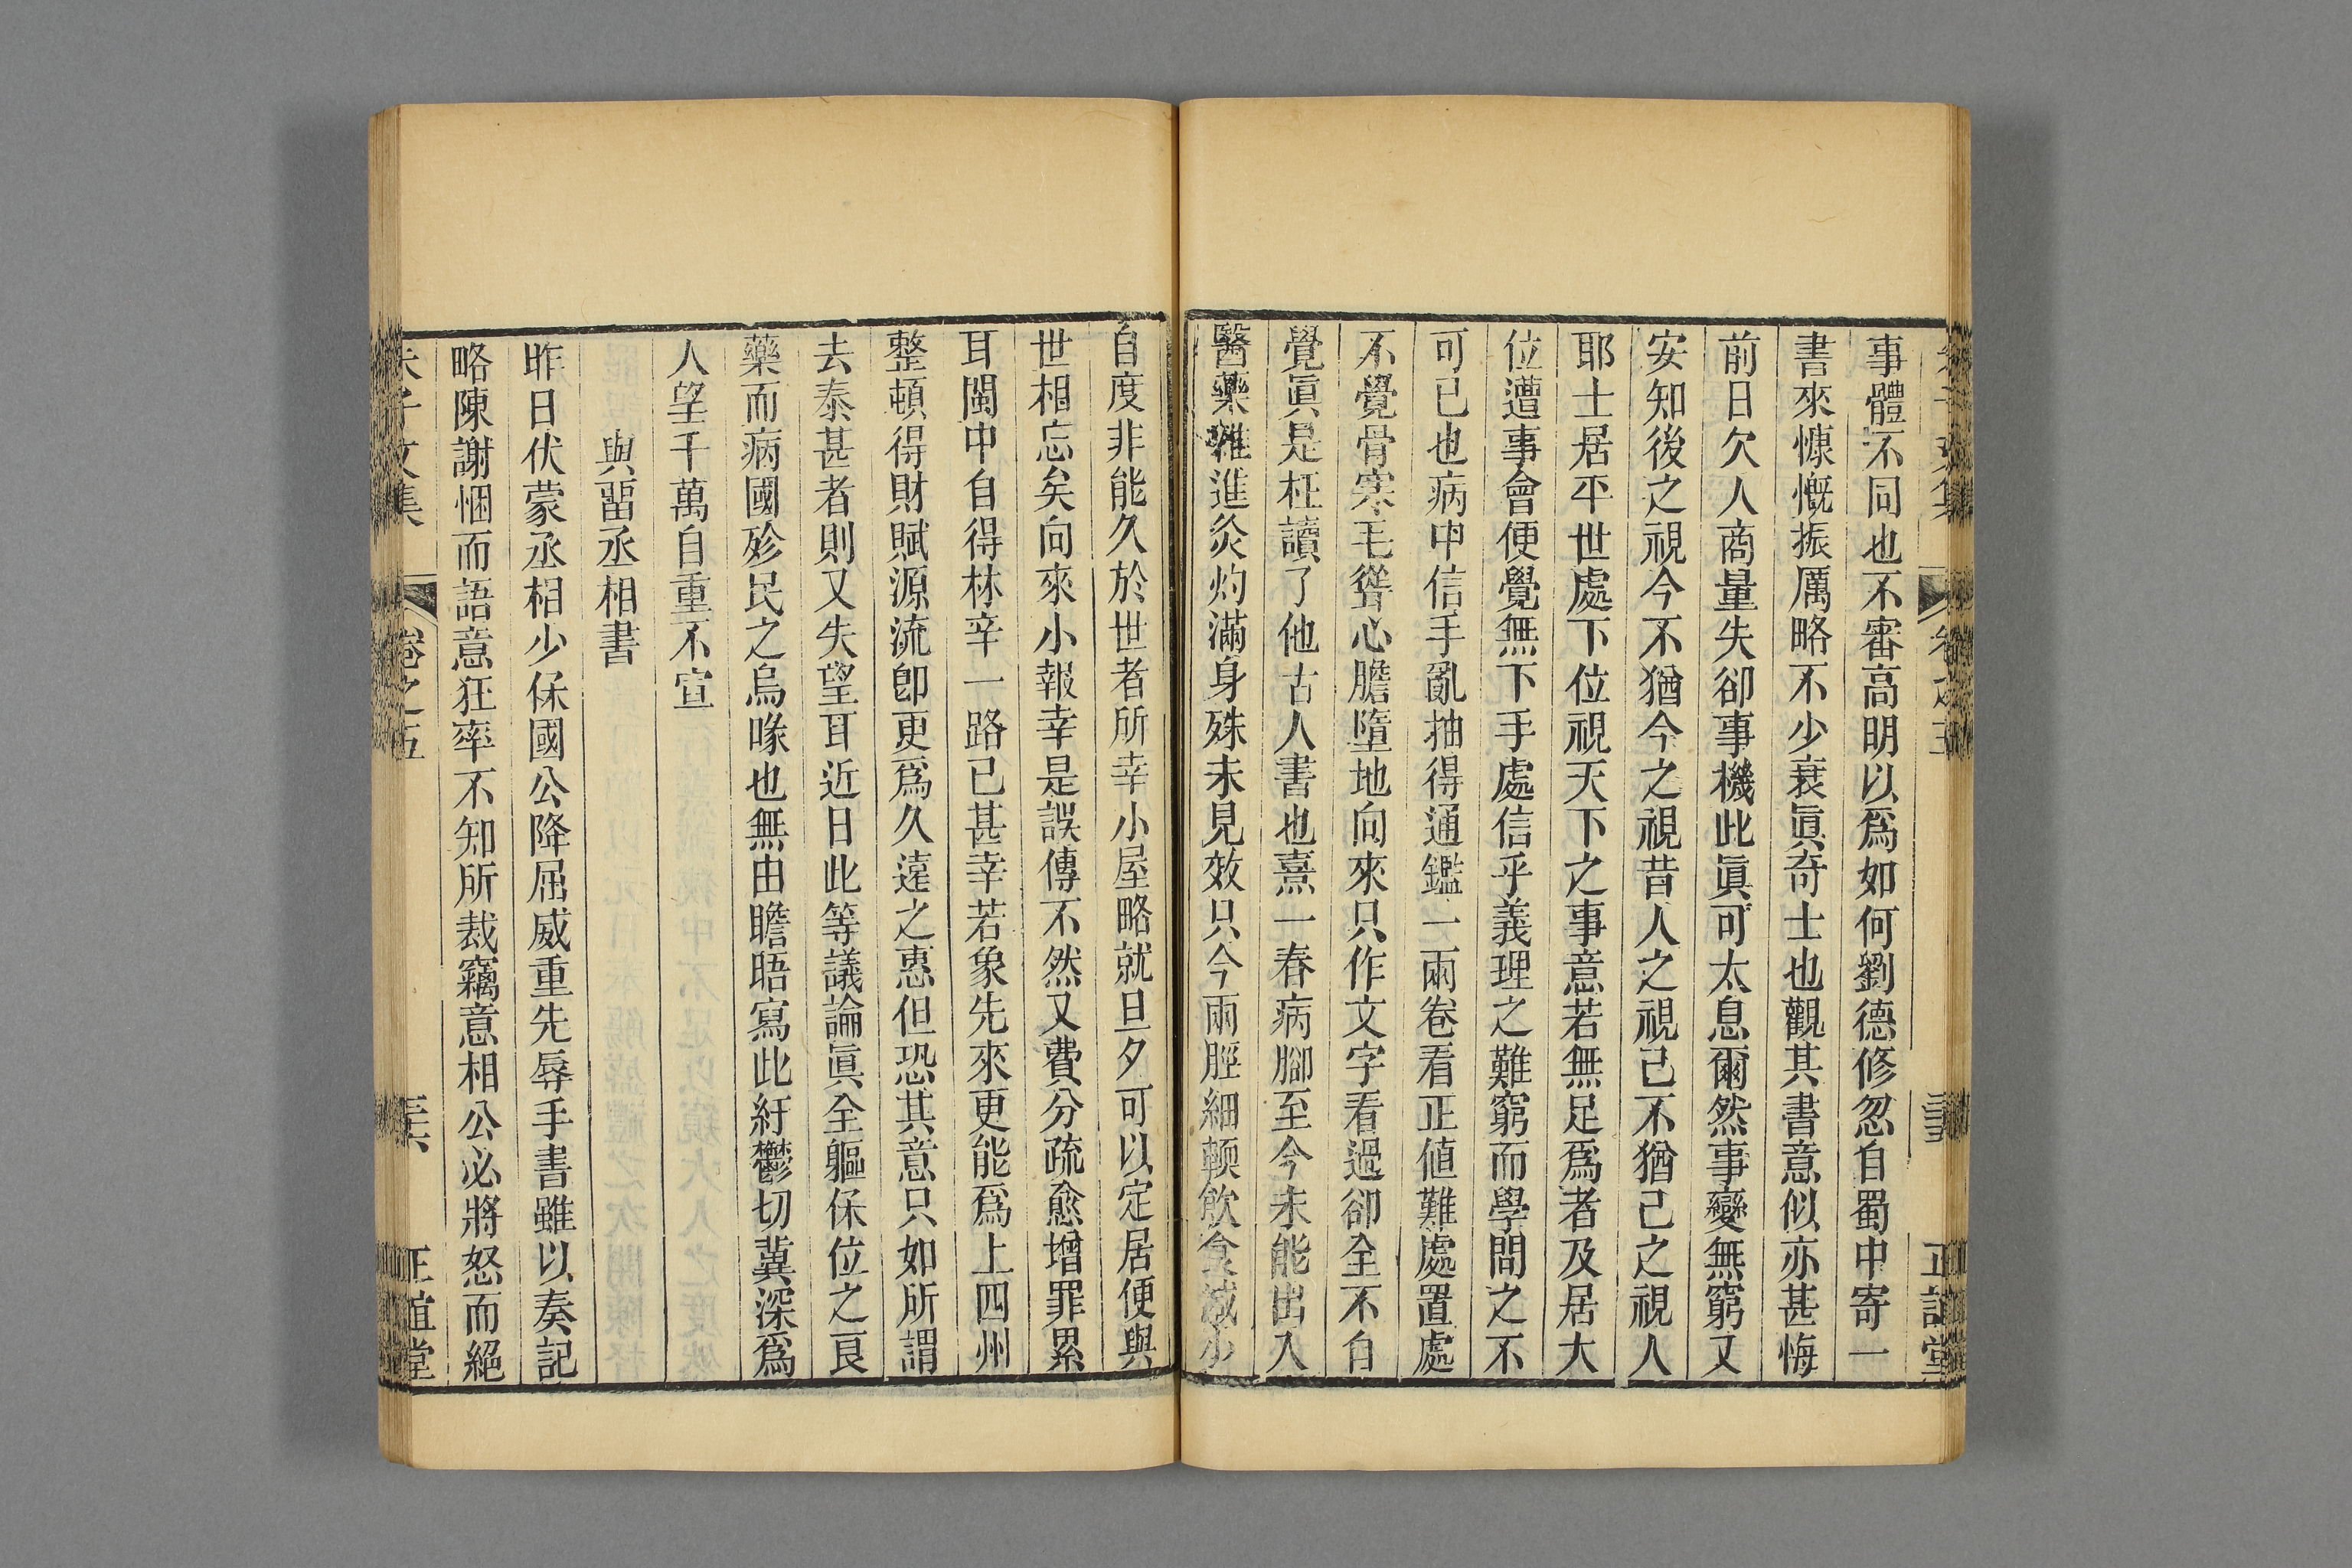 事體不同也不審高明以爲如何劉德修忽自蜀中寄一
書來慷慨振厲略不少衰眞奇士也觀其書意似亦甚悔
前日欠人商量失卻事機此眞可太息爾然事變無窮又
安知後之視今不猶今之視昔人之視己不猶己之視人
耶士居平世處下位視天下之事意若無足爲者及居大
位遭事會便覺無下手處信乎義理之難窮而學問之不
可已也病中信手亂抽得通鑑一兩卷看正値難處置處
不覺骨寒毛聳心膽墮地向來只作文字看過卻全不自
覺眞是枉讀了他古人書也熹一春病腳至今未能出入
醫藥雜進灸灼滿身殊未見效只今兩脛細輭飲食減少
自度非能久於世者所幸小屋略就旦夕可以定居便與
世相忘矣向來小報幸是誤傳不然又費分疏愈增罪累
耳閩中自得林辛一路已甚幸若象先來更能爲上四州
整頓得財賦源流卽更爲久遠之惠但恐其意只如所謂
去泰甚者則又失望耳近日此等議論眞全軀保位之良
藥而病國殄民之烏喙也無由瞻晤寫此紆鬱切冀深爲
人望千萬自重不宣
與留丞相書
昨日伏蒙丞相少保國公降屈威重先辱手書雖以奏記
略陳謝悃而語意狂率不知所裁竊意相公必將怒而絕
朱子文集 卷之五 正誼堂